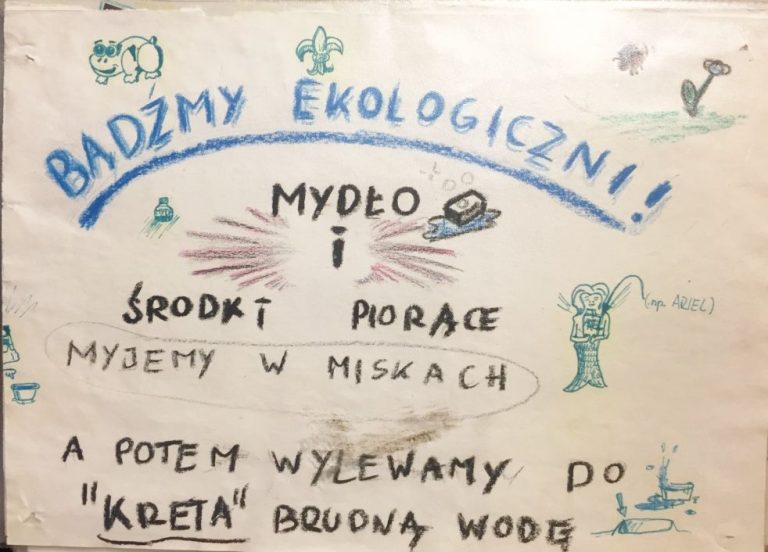 BĄDŹMY EKOLOGICZNI!
MYDŁO
i
ŚRODKI PIORĄCE
(np. ARIEL)
MYJEMY W MISKACH
A POTEM WYLEWAMY DO
"KRETA" BRUDNĄ WODĘ